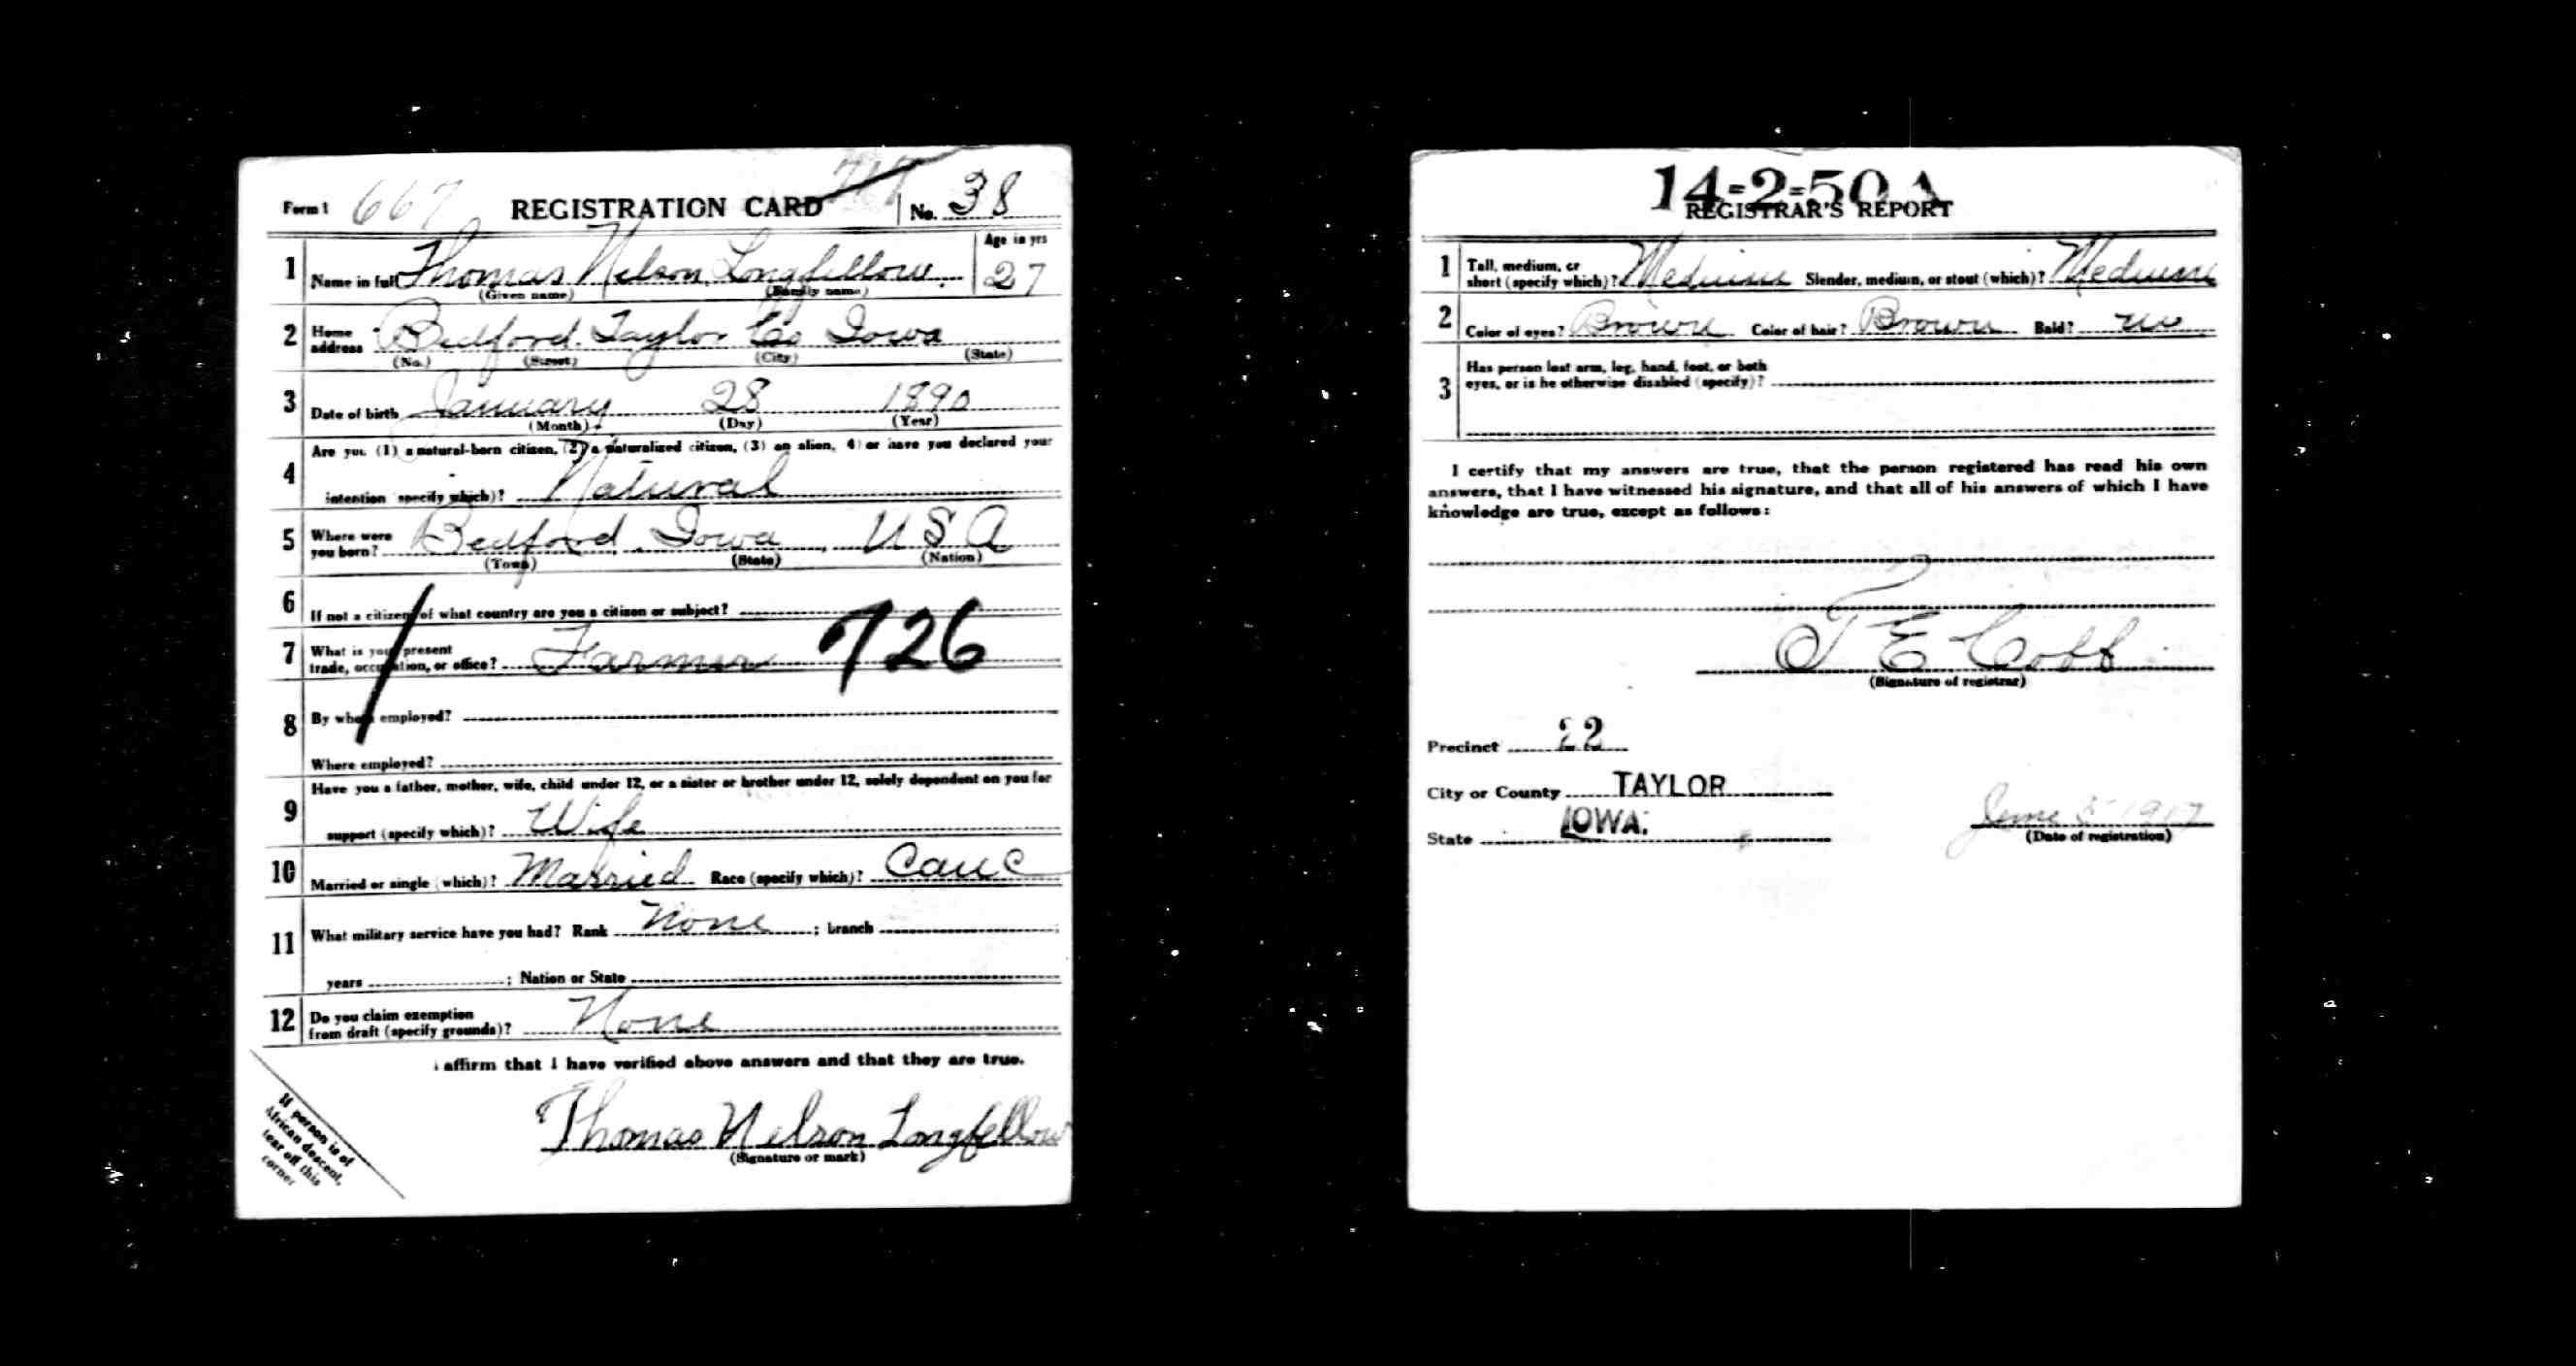 Form 1 667 REGISTRATION CARD No. 38
1 Name in full Thomas Nelson Longfellow Age in yrs 27
(Given name) (Family name)
2 Home address Bedford Taylor Co Iowa
(No.) (Street) (City) (State)
3 Date of birth January 28 1890
(Month) (Day) (Year)
4 Are you (1) a natural-born citizen, (2) a naturalized citizen, (3) an alien, (4) or have you declared your
intention (specify which)? Natural
5 Where were you born? Bedford Iowa USA
(Town) (State) (Nation)
6 If not a citizen, of what country are you a citizen or subject?
7 What is your present
trade, occupation, or office? Farmer 726
8 By whom employed?
Where employed?
9 Have you a father, mother, wife, child under 12, or a sister or brother under 12, solely dependent on you for
support (specify which)? Wife
10 Married or single (which)? Married Race (specify which)? Cauc
11 What military service have you had? Rank None ; branch ;
years ; Nation or State
12 Do you claim exemption
from draft (specify grounds)? None
I affirm that I have verified above answers and that they are true.
Thomas Nelson Longfellow
(Signature or mark)
If person is of
African descent,
tear off this
corner
14=2=50 A
REGISTRAR'S REPORT
1 Tall, medium, or
short (specify which)? Medium Slender, medium, or stout (which)? Medium
2 Color of eyes? Brown Color of hair? Brown Bald?
3 Has person lost arm, leg, hand, foot, or both
eyes, or is he otherwise disabled (specify)?
I certify that my answers are true, that the person registered has read his own
answers, that I have witnessed his signature, and that all of his answers of which I have
knowledge are true, except as follows:
T E Cobb
(Signature of registrar)
Precinct 22
City or County TAYLOR
State IOWA.
June 5 1917
(Date of registration)